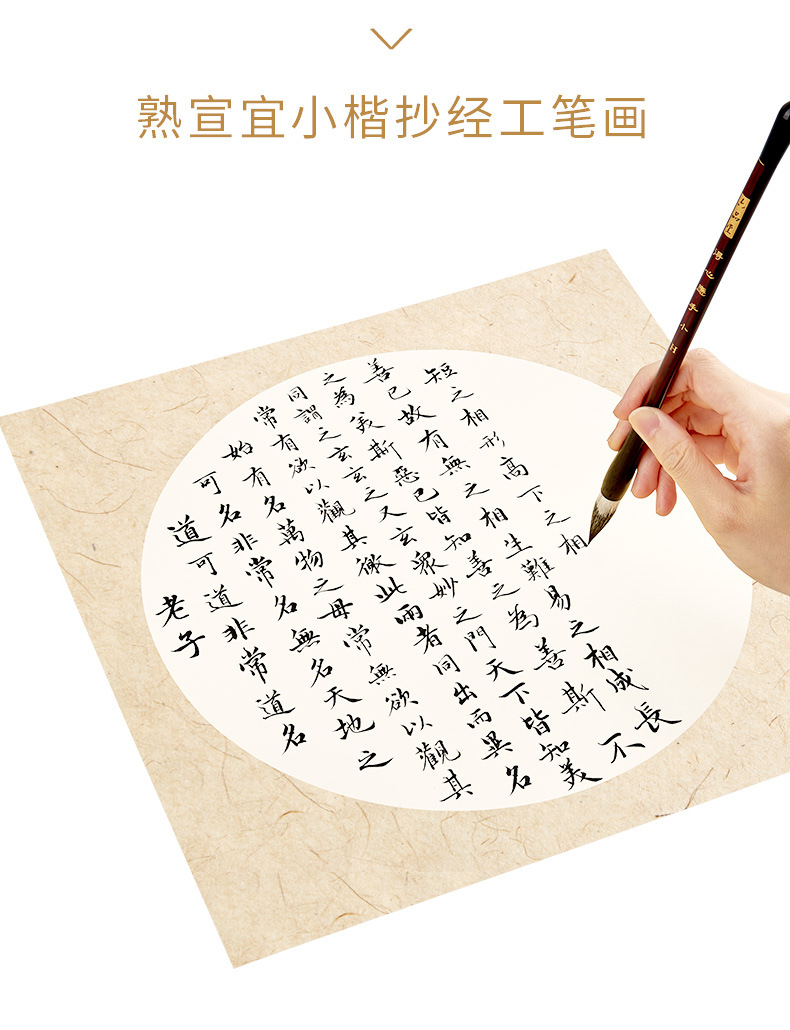 熟宣宜小楷抄经工笔画
老子
道可道非常道名
可名非常名無名天地之
始有名萬物之母常無欲以觀其
常有欲以觀其徼此兩者同出而異名
同謂之玄玄之又玄衆妙之門天下皆知美
之為美斯惡已皆知善之為善斯不
善已故有無之相生難易之相成長
短之相形高下之相
六品堂
得心應手小